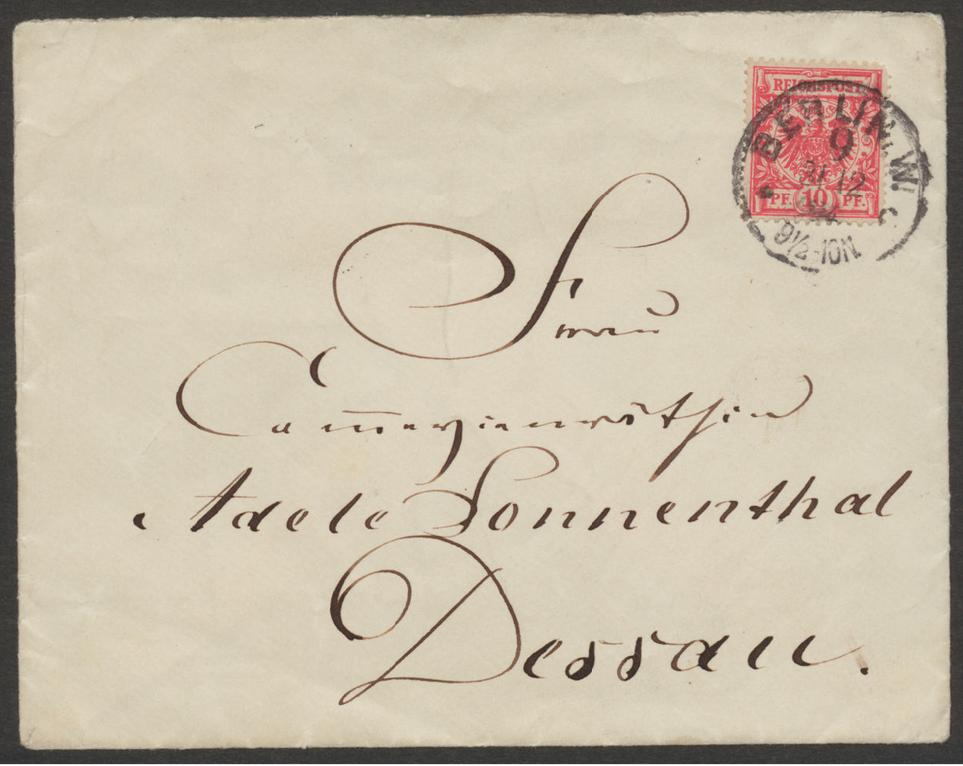 REICHSPOST
PF. 10 PF.
BERLIN.W.
9
31 12
9½-10N.
Frau
Commerzienräthin
Adele Sonnenthal
Dessau.